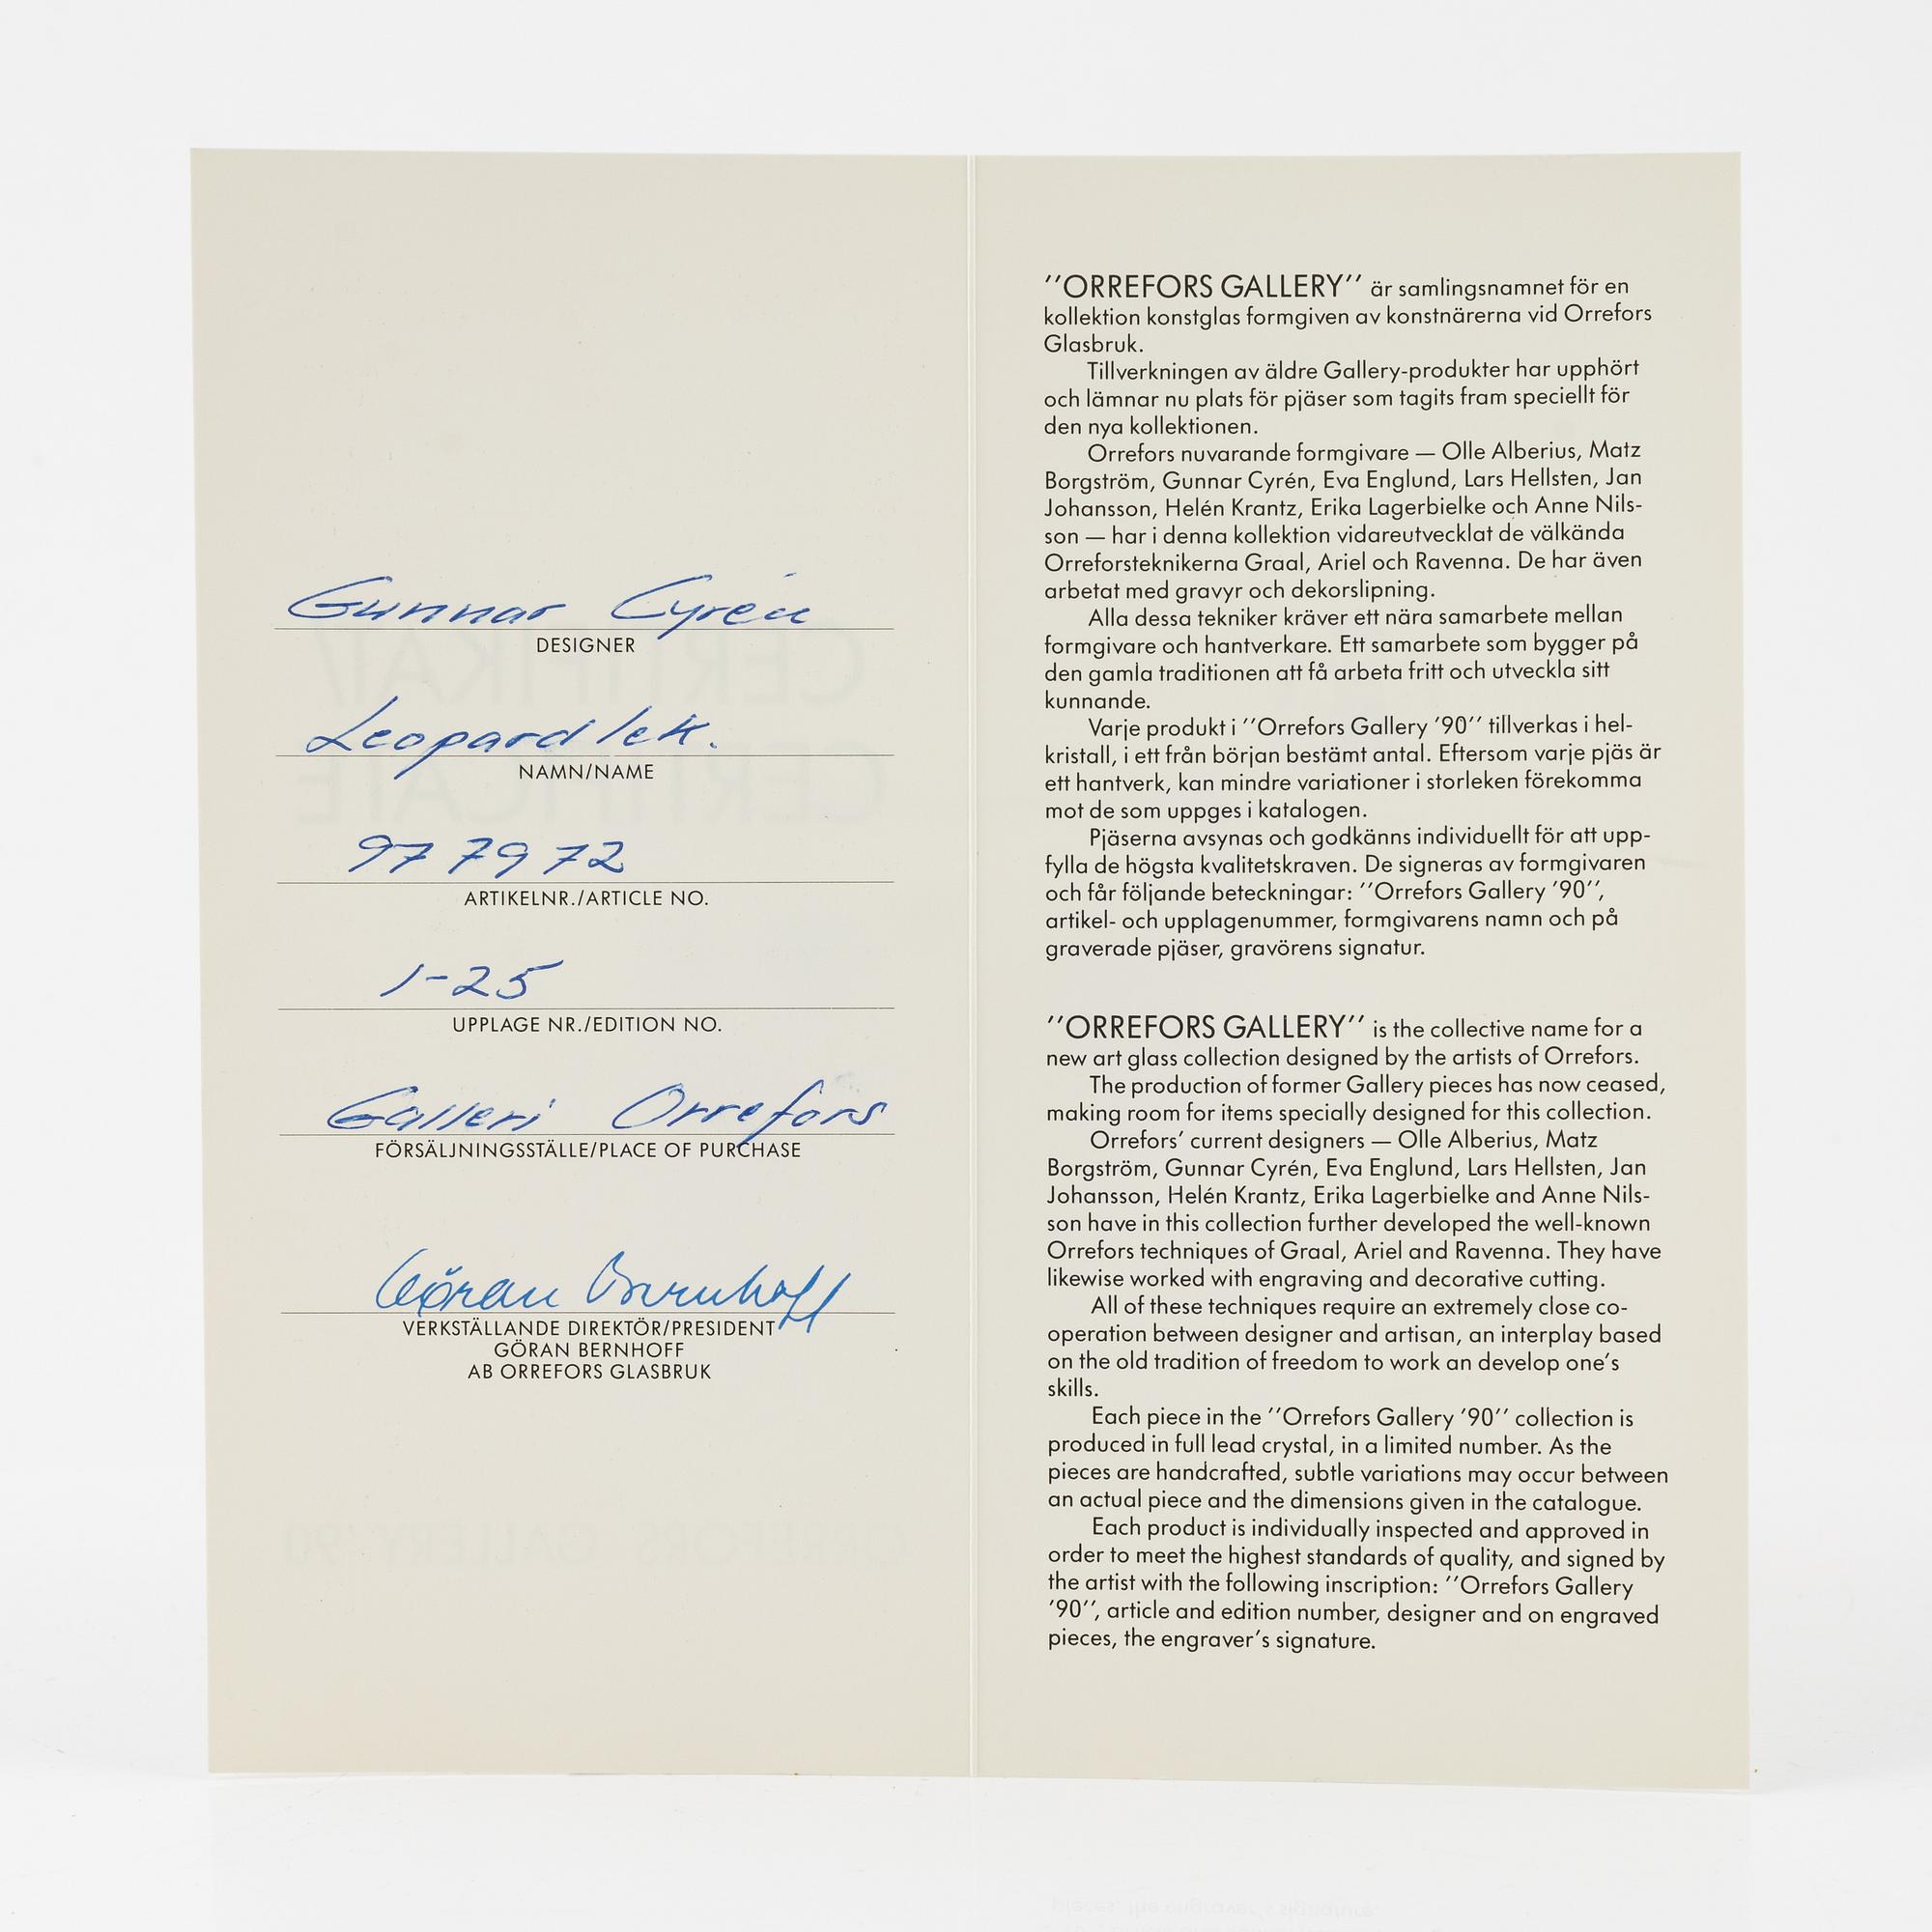 Gunnar Cyrén
DESIGNER
Leopardlek.
NAMN/NAME
977972
ARTIKELNR./ARTICLE NO.
1-25
UPPLAGE NR./EDITION NO.
Galleri Orrefors
FÖRSÄLJNINGSSTÄLLE/PLACE OF PURCHASE
Göran Bernhoff
VERKSTÄLLANDE DIREKTÖR/PRESIDENT
GÖRAN BERNHOFF
AB ORREFORS GLASBRUK
''ORREFORS GALLERY'' är samlingsnamnet för en
kollektion konstglas formgiven av konstnärerna vid Orrefors
Glasbruk.
Tillverkningen av äldre Gallery-produkter har upphört
och lämnar nu plats för pjäser som tagits fram speciellt för
den nya kollektionen.
Orrefors nuvarande formgivare — Olle Alberius, Matz
Borgström, Gunnar Cyrén, Eva Englund, Lars Hellsten, Jan
Johansson, Helén Krantz, Erika Lagerbielke och Anne Nils-
son — har i denna kollektion vidareutvecklat de välkända
Orreforsteknikerna Graal, Ariel och Ravenna. De har även
arbetat med gravyr och dekorslipning.
Alla dessa tekniker kräver ett nära samarbete mellan
formgivare och hantverkare. Ett samarbete som bygger på
den gamla traditionen att få arbeta fritt och utveckla sitt
kunnande.
Varje produkt i ''Orrefors Gallery '90'' tillverkas i hel-
kristall, i ett från början bestämt antal. Eftersom varje pjäs är
ett hantverk, kan mindre variationer i storleken förekomma
mot de som uppges i katalogen.
Pjäserna avsynas och godkänns individuellt för att upp-
fylla de högsta kvalitetskraven. De signeras av formgivaren
och får följande beteckningar: ''Orrefors Gallery '90'',
artikel- och upplagenummer, formgivarens namn och på
graverade pjäser, gravörens signatur.
''ORREFORS GALLERY'' is the collective name for a
new art glass collection designed by the artists of Orrefors.
The production of former Gallery pieces has now ceased,
making room for items specially designed for this collection.
Orrefors' current designers — Olle Alberius, Matz
Borgström, Gunnar Cyrén, Eva Englund, Lars Hellsten, Jan
Johansson, Helén Krantz, Erika Lagerbielke and Anne Nils-
son have in this collection further developed the well-known
Orrefors techniques of Graal, Ariel and Ravenna. They have
likewise worked with engraving and decorative cutting.
All of these techniques require an extremely close co-
operation between designer and artisan, an interplay based
on the old tradition of freedom to work an develop one's
skills.
Each piece in the ''Orrefors Gallery '90'' collection is
produced in full lead crystal, in a limited number. As the
pieces are handcrafted, subtle variations may occur between
an actual piece and the dimensions given in the catalogue.
Each product is individually inspected and approved in
order to meet the highest standards of quality, and signed by
the artist with the following inscription: ''Orrefors Gallery
'90'', article and edition number, designer and on engraved
pieces, the engraver's signature.